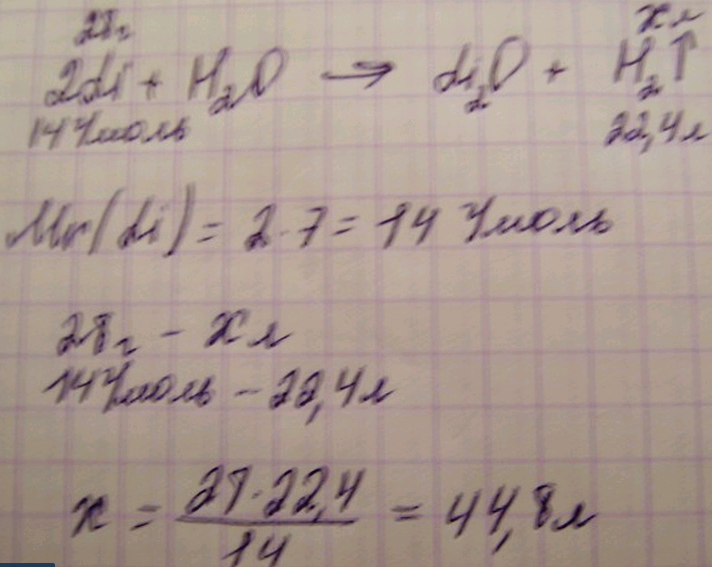 28г хл
2Li + H₂O → Li₂O + H₂↑
14 г/моль 22,4л
Mr(Li) = 2·7 = 14 г/моль
28г - хл
14 г/моль - 22,4л
х = 28·22,4 / 14 = 44,8л